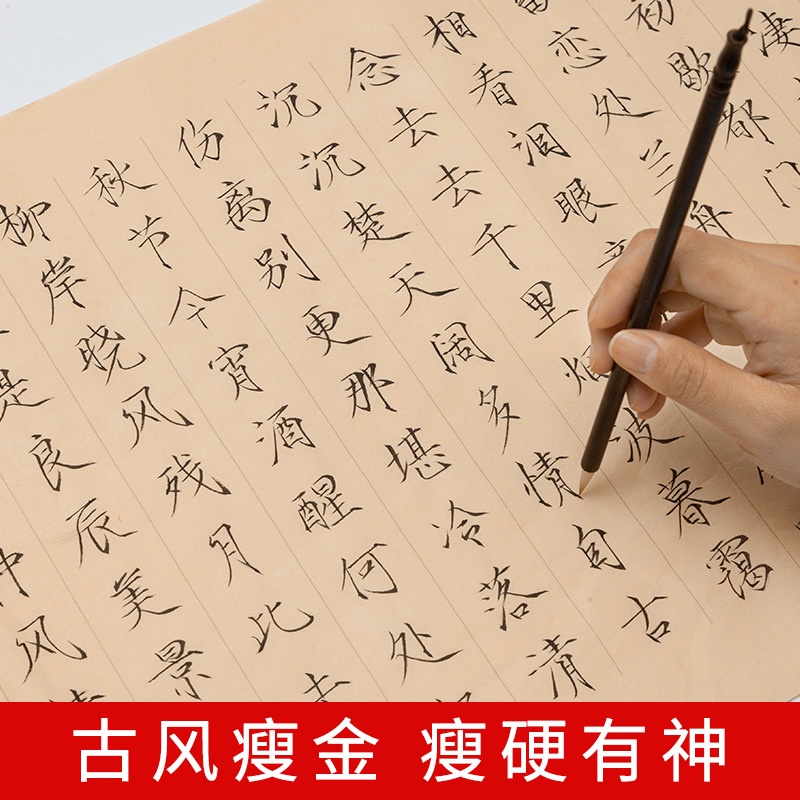 凄
初歇都门
恋处兰舟
相看泪眼
念去去千里烟波暮霭
沉沉楚天阔多情自古
伤离别更那堪冷落清
秋节今宵酒醒何处
柳岸晓风残月此去
是良辰美景
风
古风瘦金 瘦硬有神